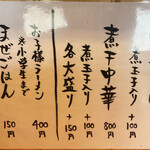 煮玉子入り
煮干中華 800円
煮玉子入り +100円
各大盛り +150円
お子様ラーメン 400円
※小学生まで
まぜごはん 150円